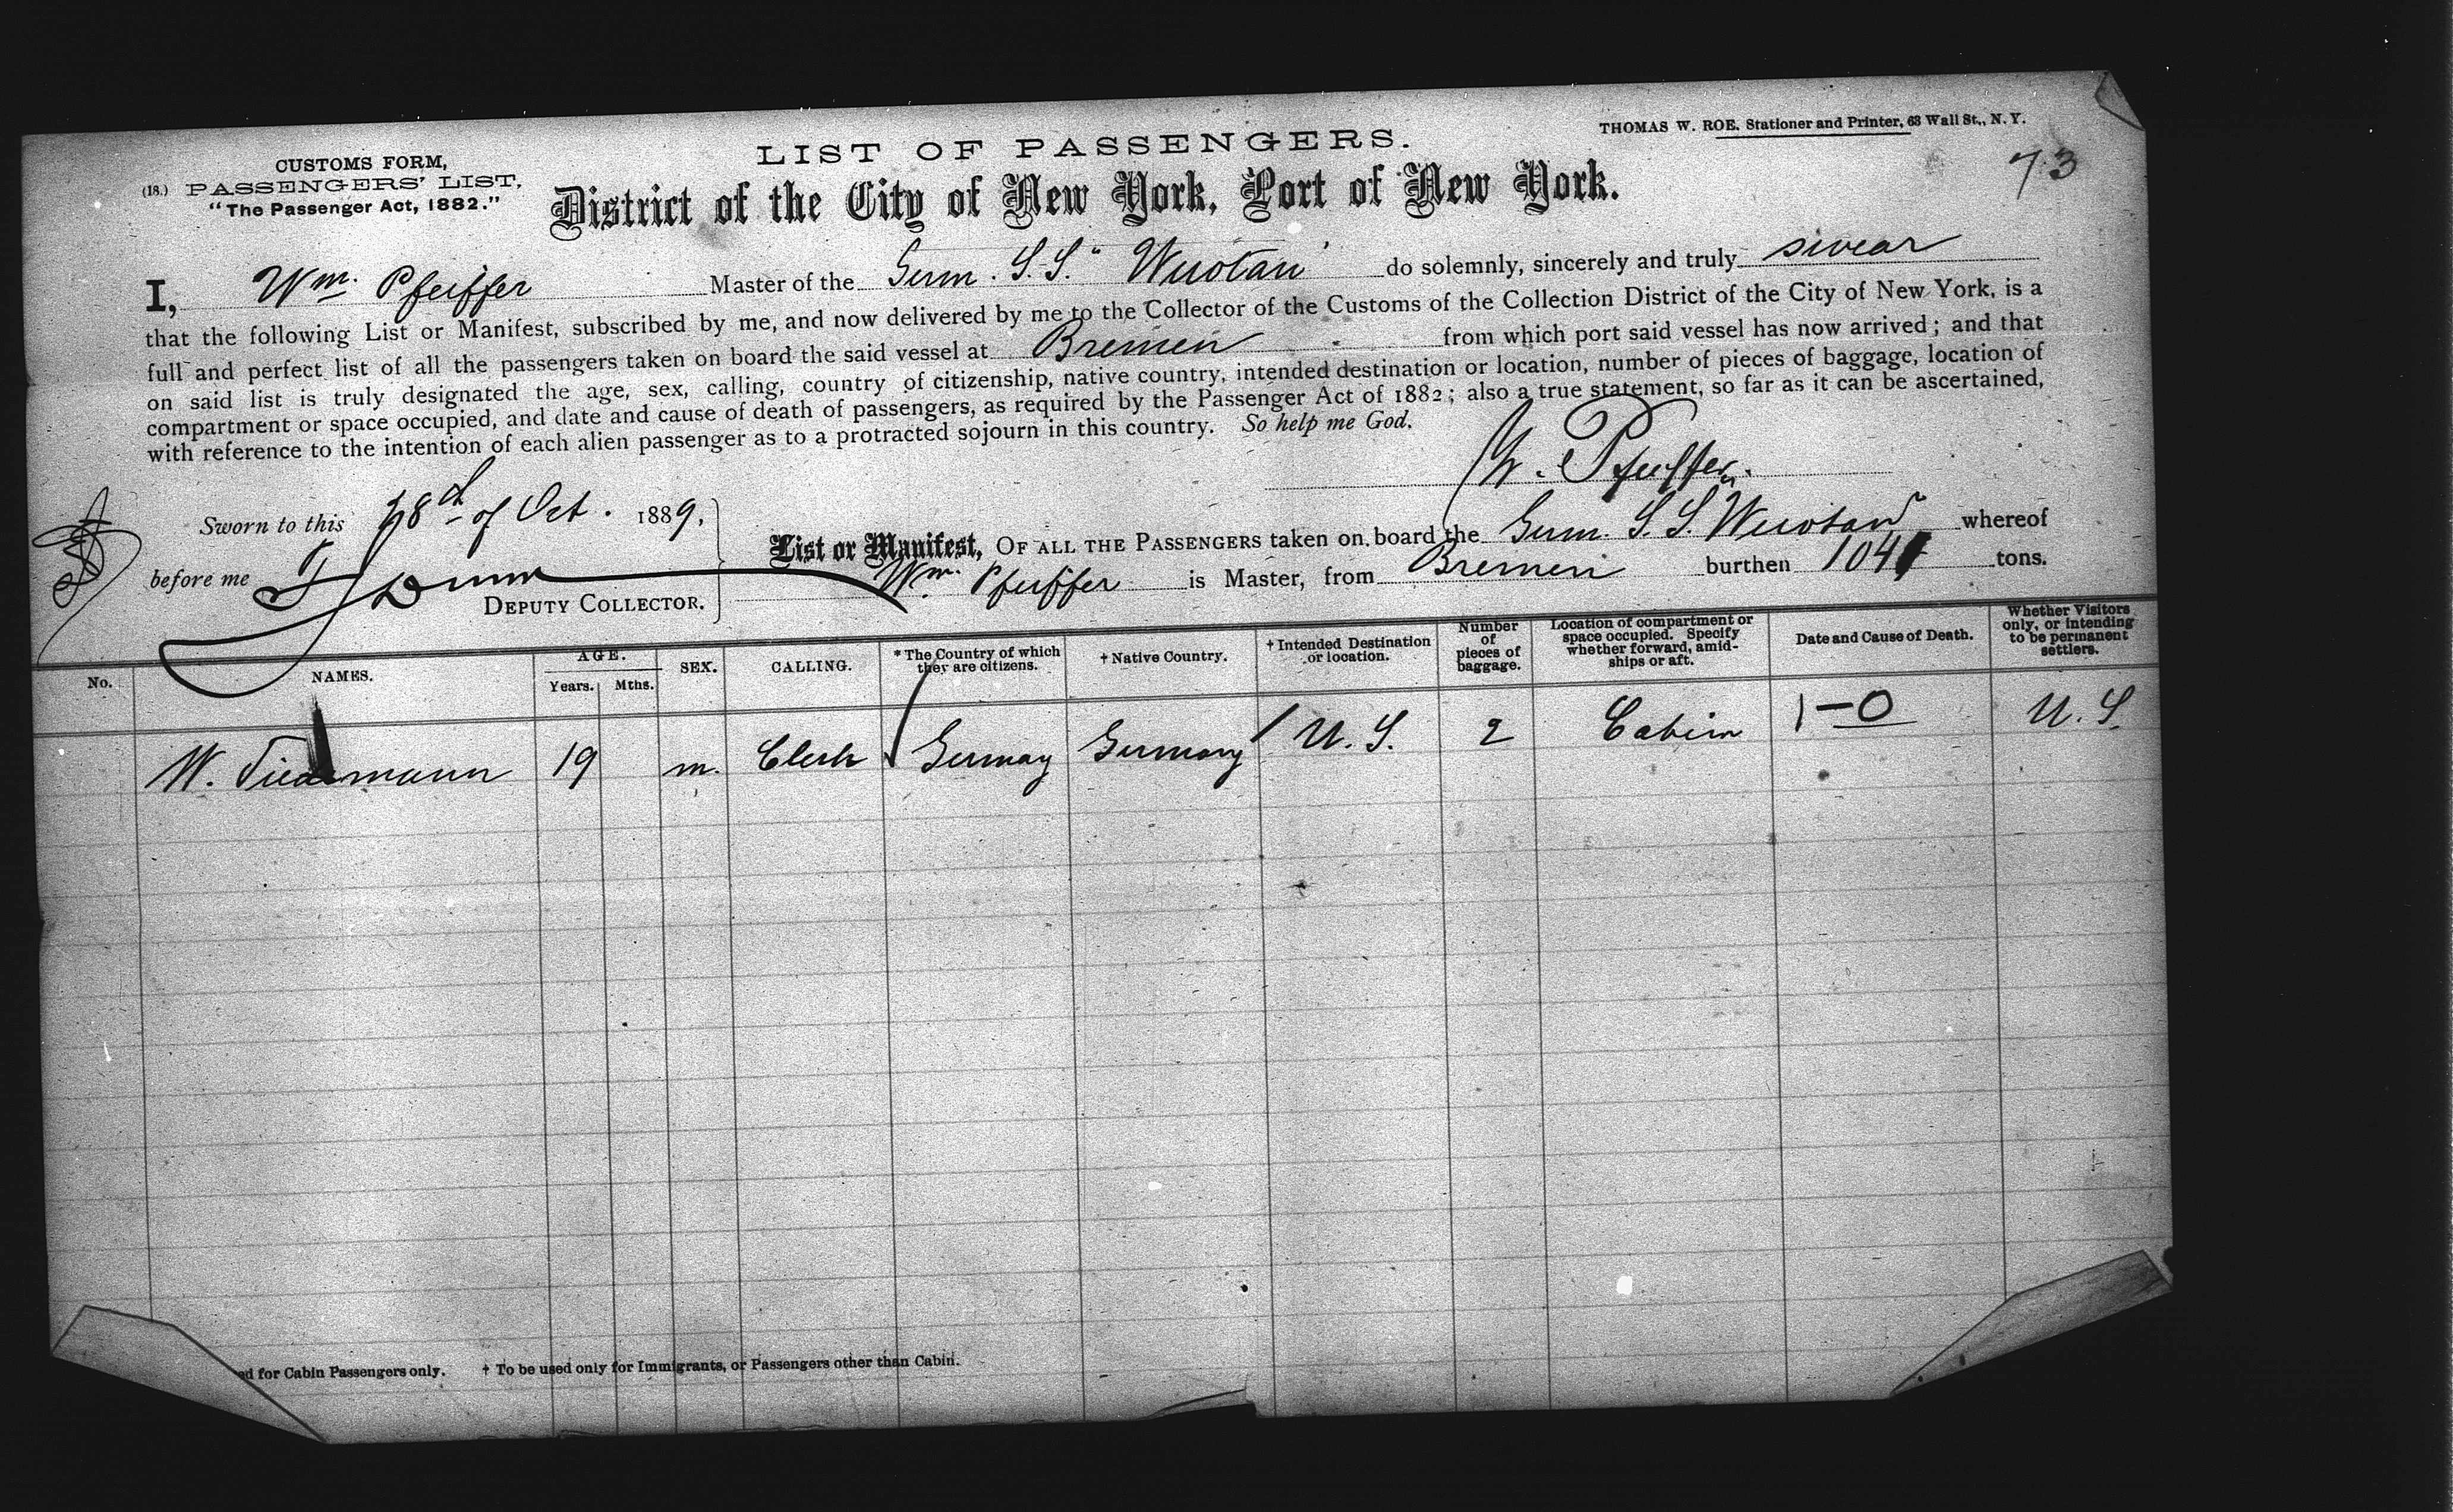 THOMAS W. ROE, Stationer and Printer, 63 Wall St., N. Y.
73
CUSTOMS FORM,
(18.) PASSENGERS' LIST,
"The Passenger Act, 1882."
LIST OF PASSENGERS.
District of the City of New York, Port of New York.
I, Wm. Pfeiffer Master of the Germ. S.S. "Wuotan" do solemnly, sincerely and truly swear
that the following List or Manifest, subscribed by me, and now delivered by me to the Collector of the Customs of the Collection District of the City of New York, is a
full and perfect list of all the passengers taken on board the said vessel at Bremen from which port said vessel has now arrived; and that
on said list is truly designated the age, sex, calling, country of citizenship, native country, intended destination or location, number of pieces of baggage, location of
compartment or space occupied, and date and cause of death of passengers, as required by the Passenger Act of 1882; also a true statement, so far as it can be ascertained,
with reference to the intention of each alien passenger as to a protracted sojourn in this country. So help me God.
W. Pfeiffer.
Sworn to this 28th of Oct. 1889,
before me Dunn
DEPUTY COLLECTOR.
List or Manifest, OF ALL THE PASSENGERS taken on board the Germ. S.S. Wuotan whereof
Wm. Pfeiffer is Master, from Bremen burthen tons.
No. NAMES. AGE. Years. Mths. SEX. CALLING. *The Country of which they are citizens. †Native Country. †Intended Destination or location. Number of pieces of baggage. Location of compartment or space occupied. Specify whether forward, amid-ships or aft. Date and Cause of Death. Whether Visitors only, or intending to be permanent settlers.
W. Tiedemann 19 m. Clerk Germay Germany U.S. 2 Cabin 1-0 U.S
ed for Cabin Passengers only. † To be used only for Immigrants, or Passengers other than Cabin.